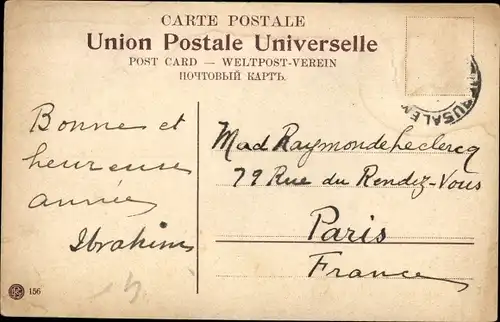 CARTE POSTALE
Union Postale Universelle
POST CARD — WELTPOST-VEREIN
ПОЧТОВЫЙ КАРТЪ.
JERUSALEM
Bonne et
heureuse
année
Ibrahim
Mad Raymonde Leclercq
79 Rue du Rendez-Vous
Paris
France
156